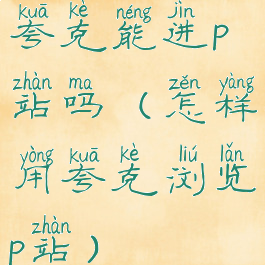 kuā kè néng jìn
夸克能进p
zhàn ma zěn yàng
站吗（怎样
yòng kuā kè liú lǎn
用夸克浏览
zhàn
p站）